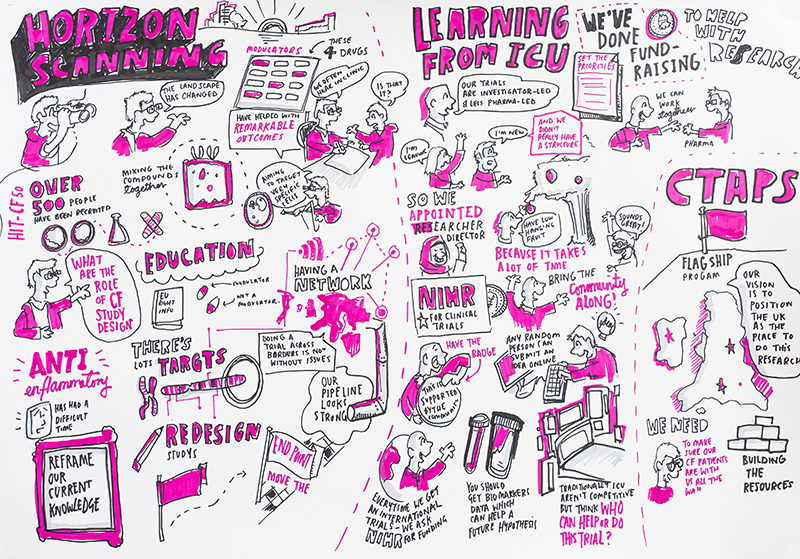 HORIZON
SCANNING
THE LANDSCAPE
HAS CHANGED
MODULATORS
THESE
4 DRUGS
HAVE HELPED WITH
REMARKABLE
OUTCOMES
WE OFTEN
HEAR IN CLINIC
IS THAT
IT?
HIT-CF SO
OVER
500 PEOPLE
HAVE BEEN RECRUITED
MIXING THE
COMPOUNDS
together
AIMING TO TARGET
VERY
SPECIFIC
CELLS
WHAT
ARE THE
ROLE
OF CF
STUDY
DESIGN"
EDUCATION
EU
RIGHT
INFO
MODULATOR
NOT A
MODULATOR
HAVING A
NETWORK
ANTI
enflammatory
HAS HAD A
DIFFICULT
TIME
THERE'S
LOTS TARGTS
DOING A
TRIAL ACROSS
BORDERS IS NOT
WITHOUT ISSUES
OUR
PIPELINE
LOOKS
STRONG
REFRAME
OUR
CURRENT
KNOWLEDGE
REDESIGN
STUDYS
END POINT
MOVE THE
LEARNING
FROM ICU
OUR TRIALS
ARE INVESTIGATOR-LED
& LESS PHARMA-LED
I'M LEAVING
I'M NEW
AND WE
DIDN'T
REALLY HAVE
A STRUCTURE
SO WE
APPOINTED
RESEARCHER
DIRECTOR
HAVE LOW
HANGING
FRUIT
SOUNDS
GREAT!
BECAUSE IT TAKES
A LOT OF TIME
NIHR
FOR CLINICAL
TRIALS
BRING THE
Community
ALONG!
HAVE THE
BADGE
THIS IS
SUPPORTED
BY THE
COMMUNITY
ANY RANDOM
PERSON CAN
SUBMIT AN
IDEA ONLINE
EVERYTIME WE GET
AN INTERNATIONAL
TRIALS - WE ASK
NIHR FOR FUNDING
YOU SHOULD
GET BIOMARKERS
DATA WHICH
CAN HELP A
FUTURE HYPOTHESIS
TRADITIONALLY ICU
AREN'T COMPETITIVE
BUT THINK WHO
CAN HELP OR DO
THIS TRIAL?
WE'VE
DONE
FUND-
RAISING
TO HELP
WITH
RESEARCH
SET THE
PRIORITIES
WE CAN
WORK
together
PHARMA
CTAPS
FLAGSHIP
PROGAM
OUR
VISION IS
TO
POSITION
THE UK
AS THE
PLACE TO
DO THIS
RESEARCH
WE NEED
TO MAKE
SURE OUR
CF PATIENTS
ARE WITH
US ALL THE
WAY
BUILDING
THE
RESOURCES